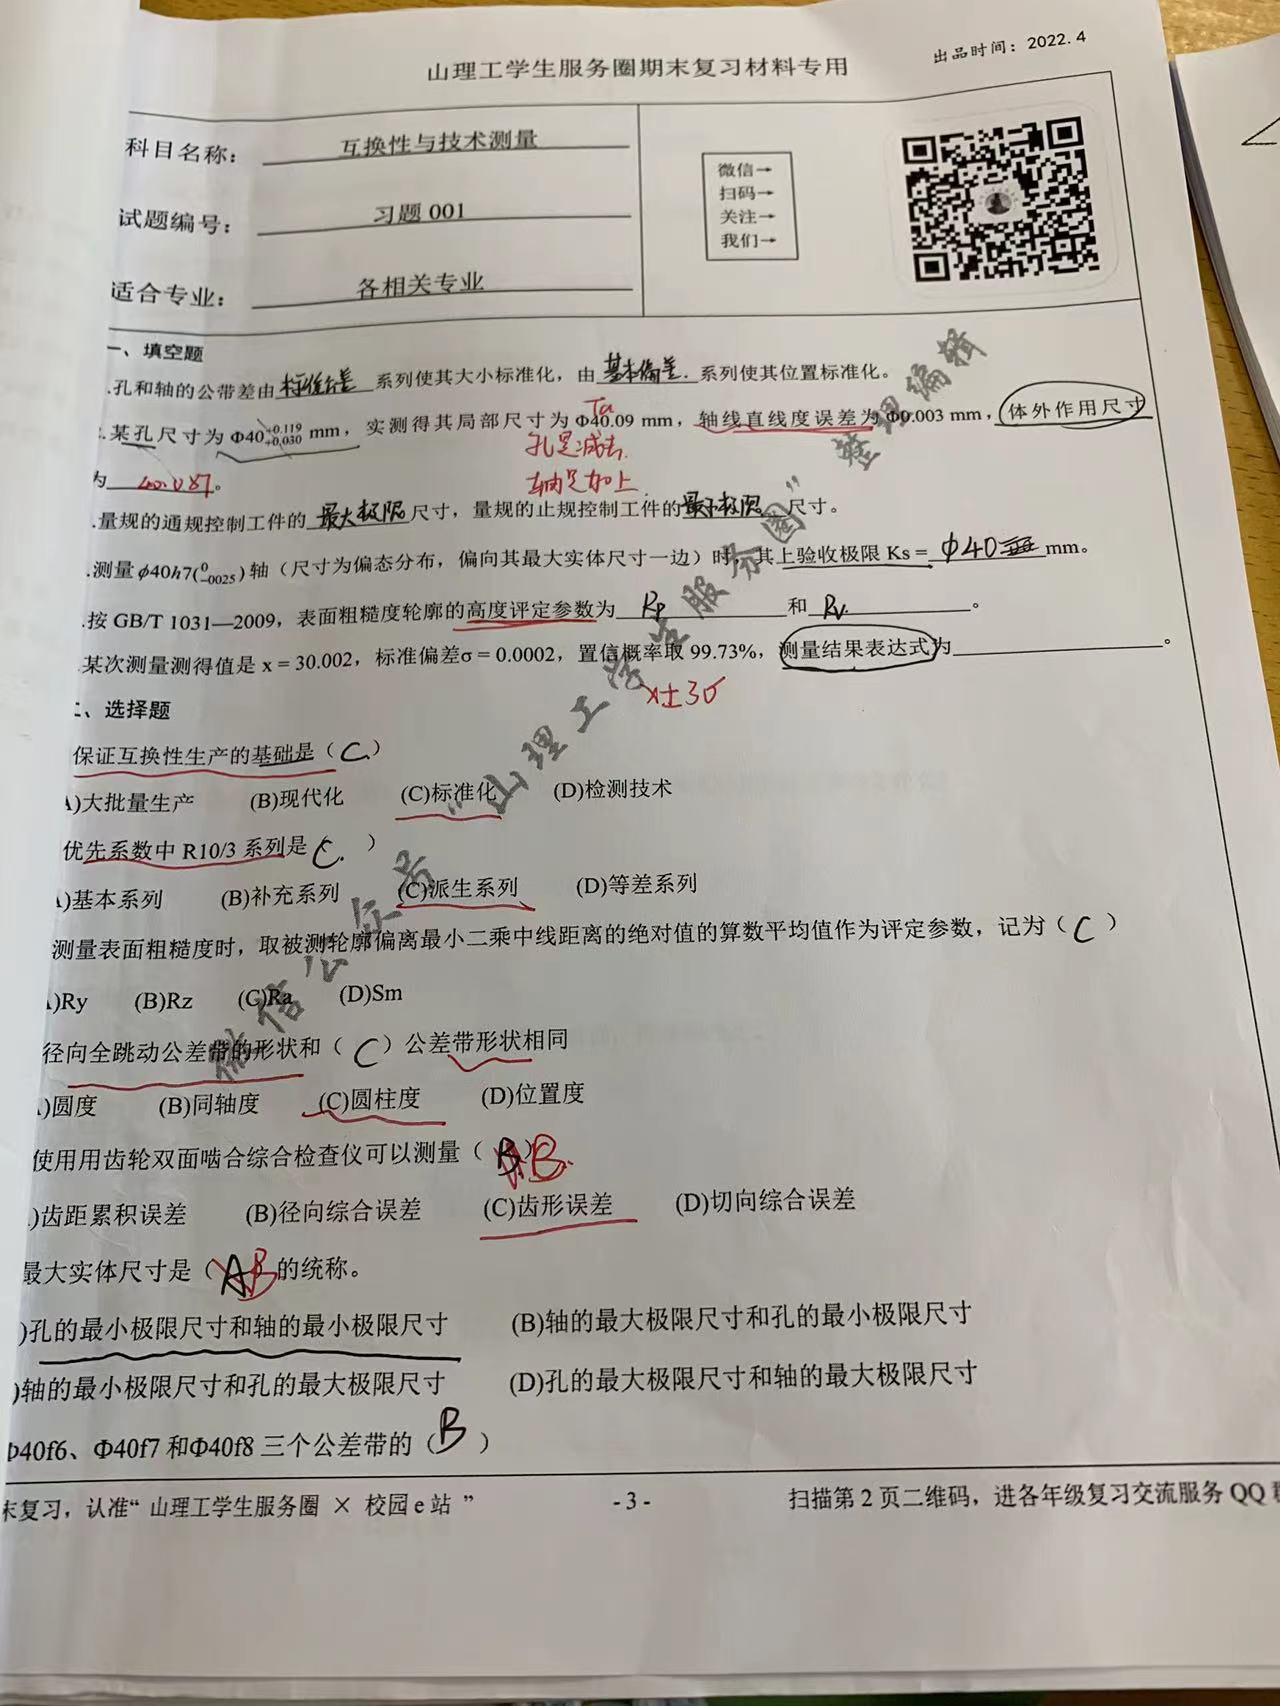 出品时间：2022.4
山理工学生服务圈期末复习材料专用
科目名称： 互换性与技术测量
试题编号： 习题 001
适合专业： 各相关专业
微信→
扫码→
关注→
我们→
一、填空题
.孔和轴的公带差由 标准公差 系列使其大小标准化，由 基本偏差. 系列使其位置标准化。
.某孔尺寸为 Φ40+0.119+0.030 mm，实测得其局部尺寸为 Φ40.09 mm，轴线直线度误差为 Φ0.003 mm，体外作用尺寸
Ta
孔是减去
为 40.087。
轴是加上.
.量规的通规控制工件的 最大极限 尺寸，量规的止规控制工件的 最小极限 尺寸。
.测量 ϕ40h7(0-0025) 轴（尺寸为偏态分布，偏向其最大实体尺寸一边）时，其上验收极限 Ks = ϕ40 mm。
.按 GB/T 1031—2009，表面粗糙度轮廓的高度评定参数为 Rp 和 Rv. 。
.某次测量测得值是 x = 30.002，标准偏差σ = 0.0002，置信概率取 99.73%，测量结果表达式为 。
x±3σ
二、选择题
保证互换性生产的基础是（ C ）
A)大批量生产 (B)现代化 (C)标准化 (D)检测技术
优先系数中 R10/3 系列是（ C. ）
A)基本系列 (B)补充系列 (C)派生系列 (D)等差系列
测量表面粗糙度时，取被测轮廓偏离最小二乘中线距离的绝对值的算数平均值作为评定参数，记为（ C ）
)Ry (B)Rz (C)Ra (D)Sm
径向全跳动公差带的形状和（ C ）公差带形状相同
)圆度 (B)同轴度 (C)圆柱度 (D)位置度
使用用齿轮双面啮合综合检查仪可以测量（ B ） B.
)齿距累积误差 (B)径向综合误差 (C)齿形误差 (D)切向综合误差
最大实体尺寸是（ A B 的统称。
)孔的最小极限尺寸和轴的最小极限尺寸 (B)轴的最大极限尺寸和孔的最小极限尺寸
)轴的最小极限尺寸和孔的最大极限尺寸 (D)孔的最大极限尺寸和轴的最大极限尺寸
Φ40f6、Φ40f7 和Φ40f8 三个公差带的（ B ）
微信公众号“山理工学生服务圈”整理编辑
末复习，认准“ 山理工学生服务圈 × 校园 e 站 ”
- 3 -
扫描第 2 页二维码，进各年级复习交流服务 QQ